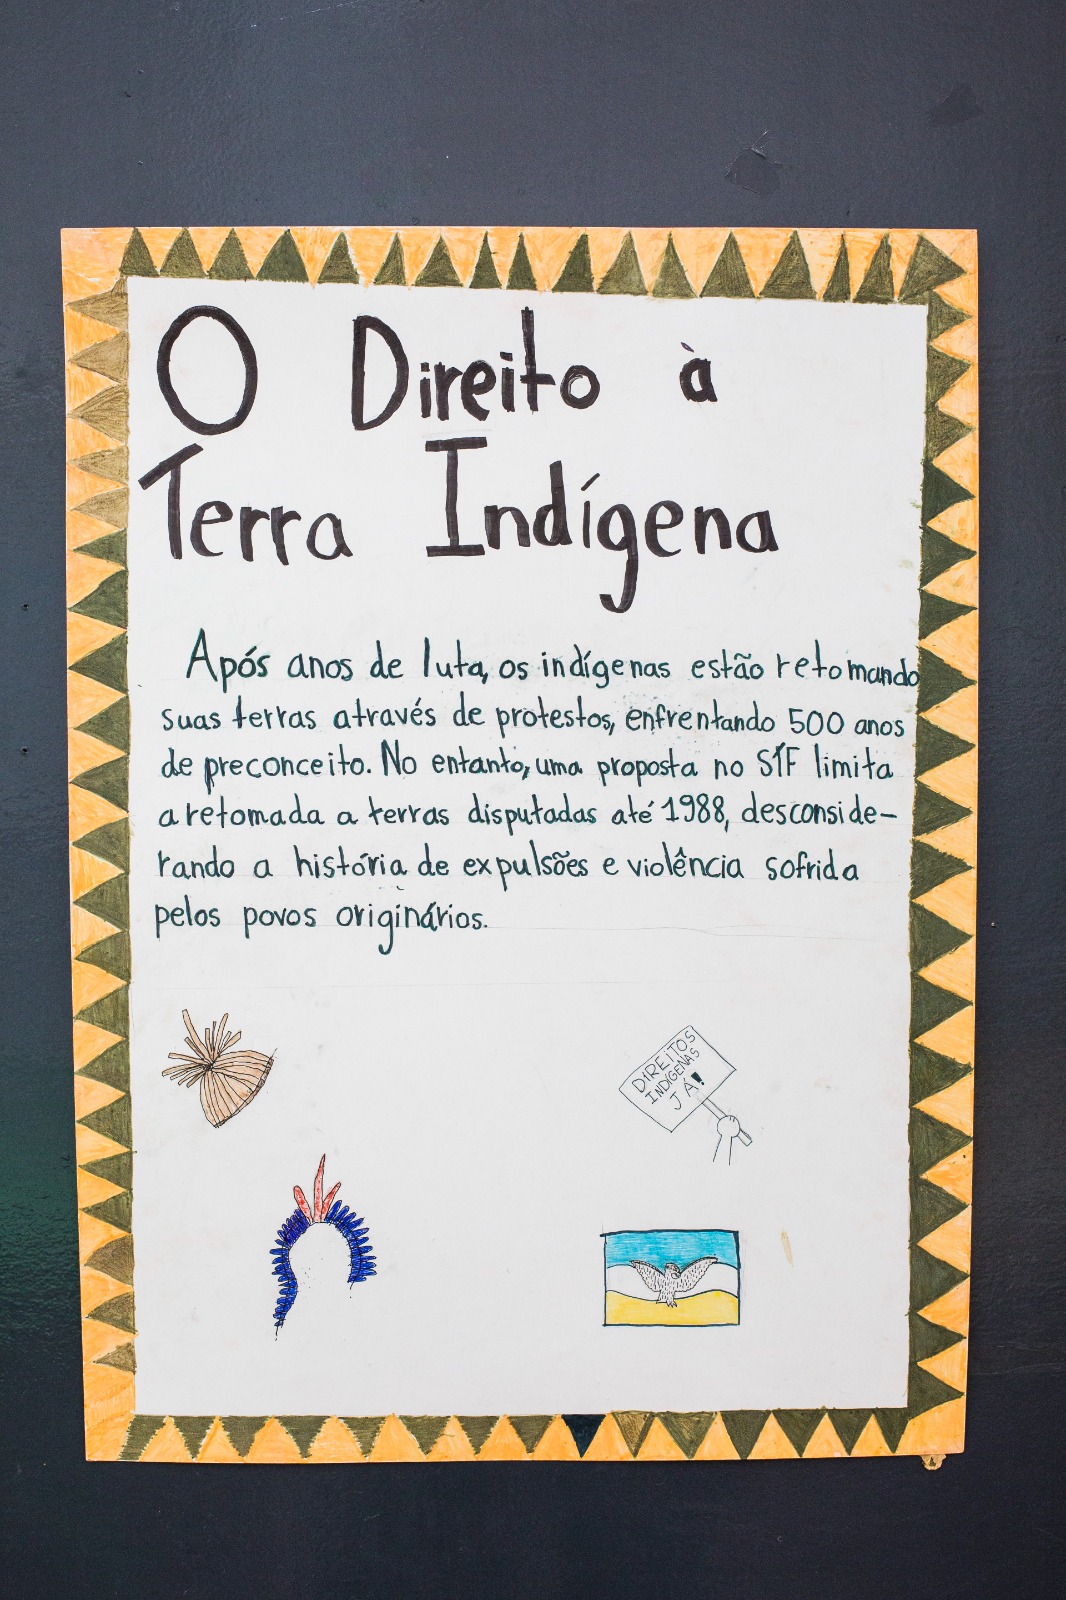 O Direito à
Terra Indígena
Após anos de luta, os indígenas estão retomando
suas terras através de protestos, enfrentando 500 anos
de preconceito. No entanto, uma proposta no STF limita
a retomada a terras disputadas até 1988, desconside-
rando a história de expulsões e violência sofrida
pelos povos originários.
DIREITOS
INDÍGENAS
JÁ!